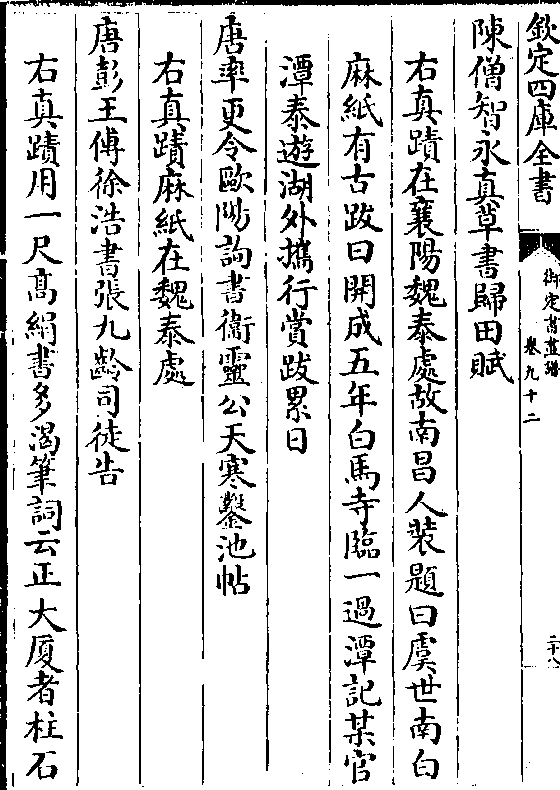 欽定四庫全書
御定書畫譜
卷九十二
二十八
陳僧智永真草書歸田賦
右真蹟在襄陽魏泰處故南昌人裝題曰虞世南白
麻紙有古跋曰開成五年白馬寺臨一過潭記某官
潭泰遊湖外攜行賞跋累日
唐率更令歐陽詢書衞靈公天寒鑿池帖
右真蹟麻紙在魏泰處
唐彭王傅徐浩書張九齡司徒告
右真蹟用一尺髙絹書多渴筆詞云正大厦者柱石